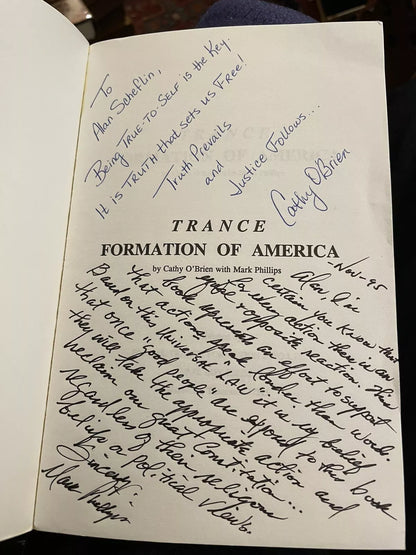 To
Alan Scheflin,
Being TRUE-TO-SELF is the Key.
It is TRUTH that sets us FREE!
Truth Prevails
and
Justice Follows....
Cathy O'Brien
TRANCE
FORMATION OF AMERICA
by Cathy O'Brien with Mark Phillips
Nov. 95
Alan, I'm
certain you know that
for every action there is an
equal & opposite reaction. This
book represents an effort to support
that actions speak louder than words.
Based on this Universal LAW it is my belief
that once "good people" are exposed to this book
they will take the appropriate action and
reclaim our great Constitution...
regardless of their religious
beliefs or political views.
Sincerely,
Mark Phillips